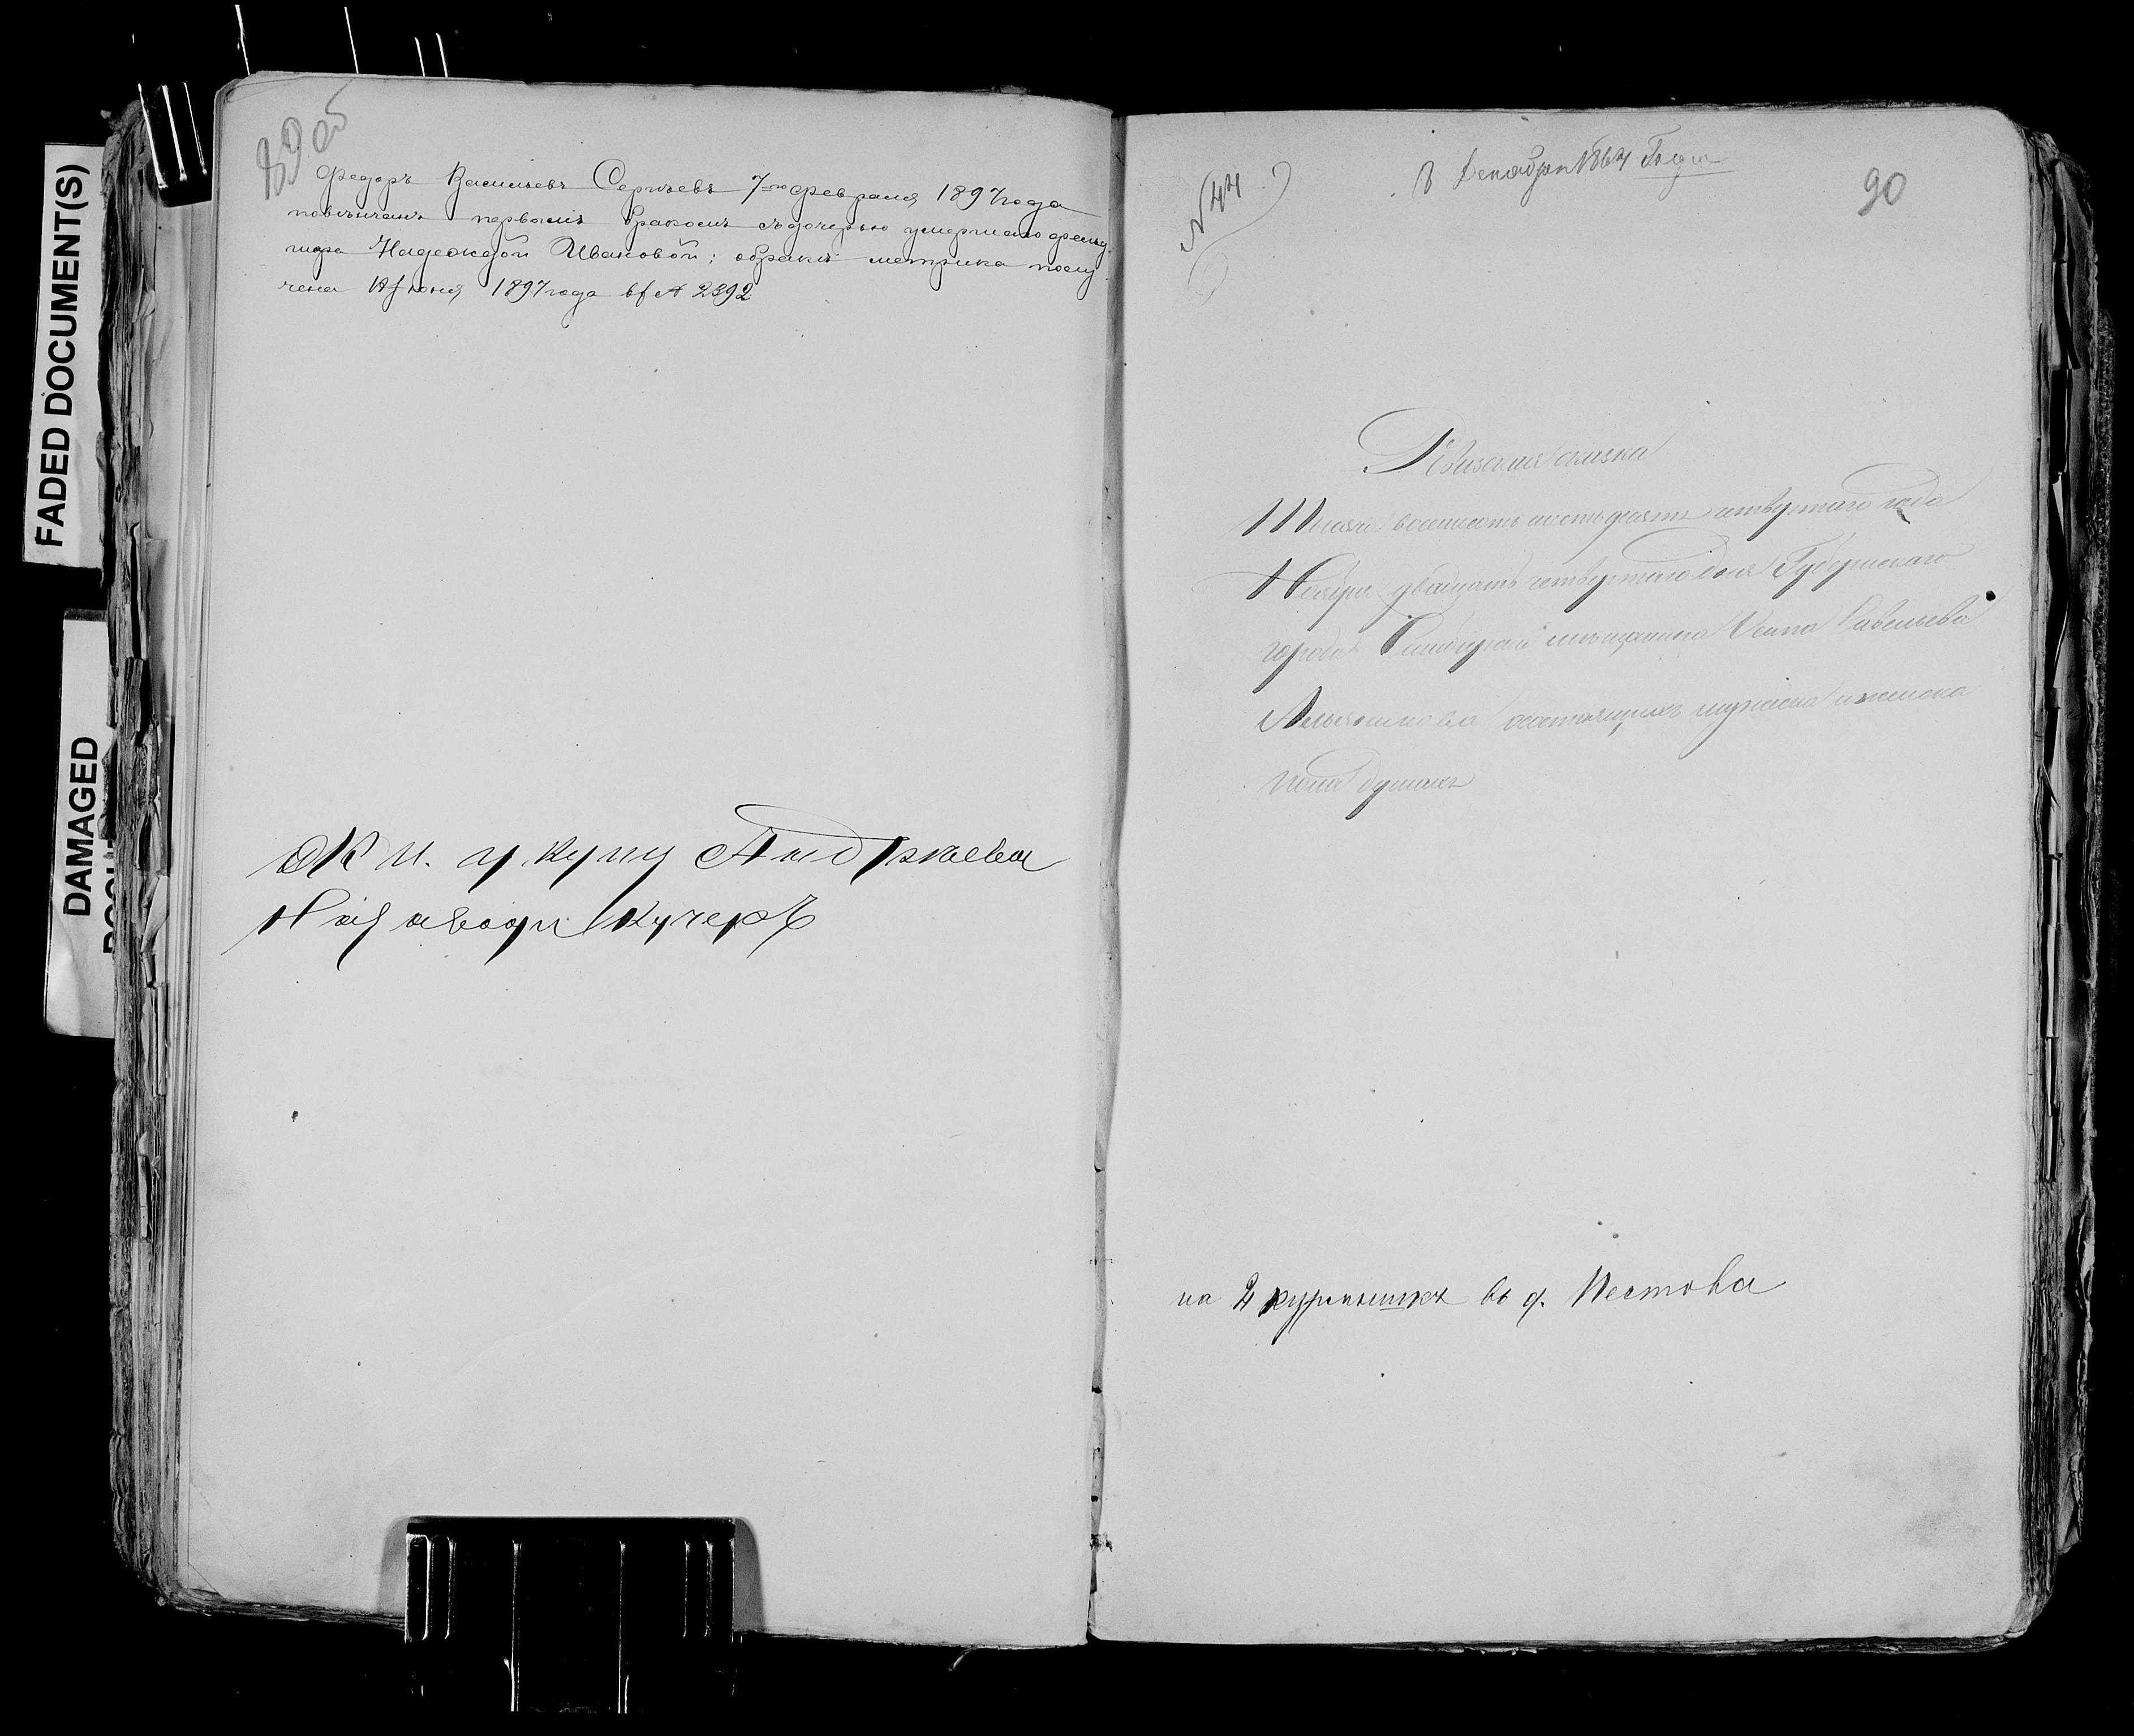 FADED DOCUMENT(S)
DAMAGED
89 об
Федоръ Васильевъ Сергѣевъ 7го февраля 1897 года
повѣнчанъ первымъ бракомъ съ дочерью умершаго фельд
шера Надеждой Ивановой; о бракѣ метрика полу
чена Іюня 1897 года № 2392
купцу Андрѣева
кучеръ
№ 44
8 Декабря 1864 Года
90
Ревизская сказка
Тысяча восемьсотъ шестьдесятъ четвертаго года
Ноября двадцать четвертаго дня Губернскаго
города Симбирска мѣщанина Осипа Савельева
состоящихъ мужеска и женска
пола душахъ
на 2 въ д. Пестова